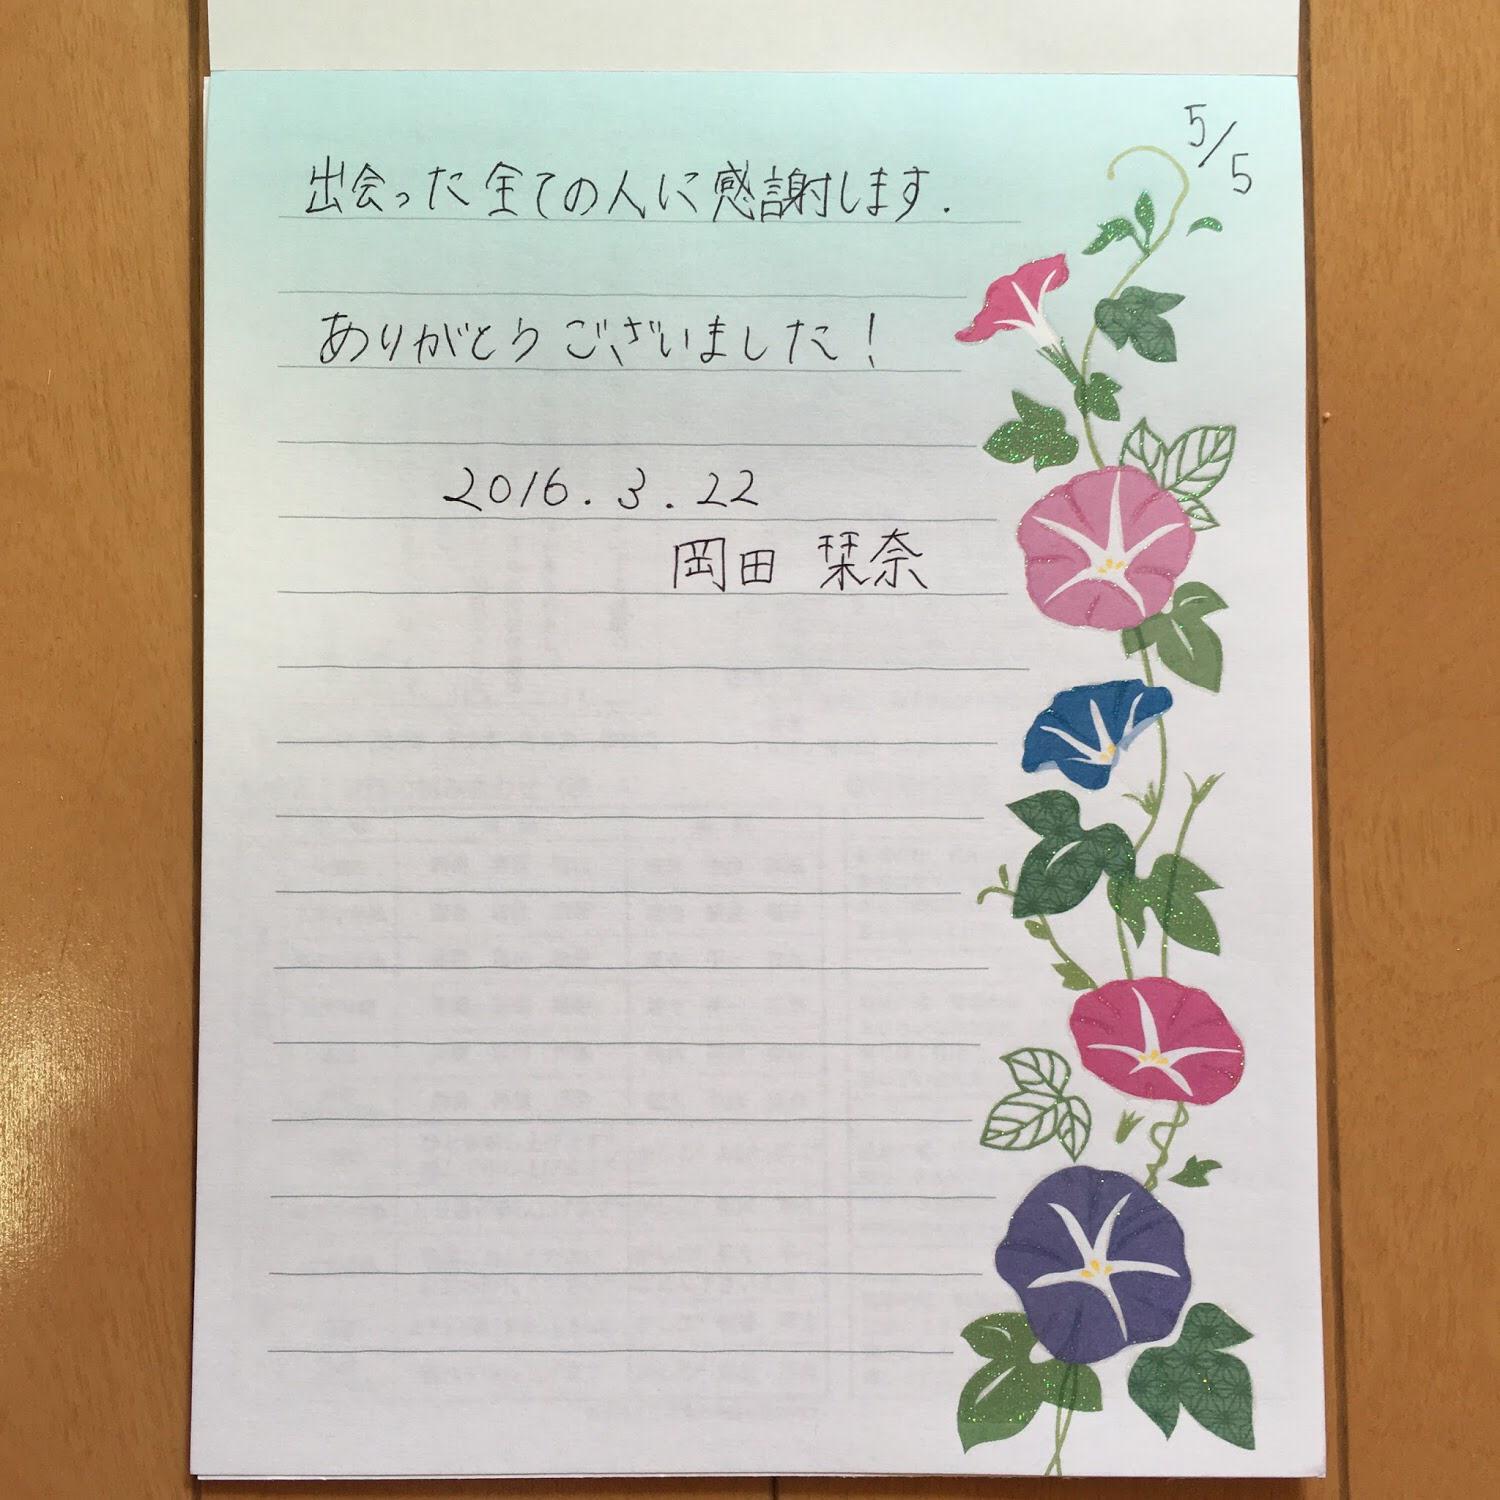 5/5
出会った全ての人に感謝します.
ありがとうございました!
2016.3.22
岡田 栞奈